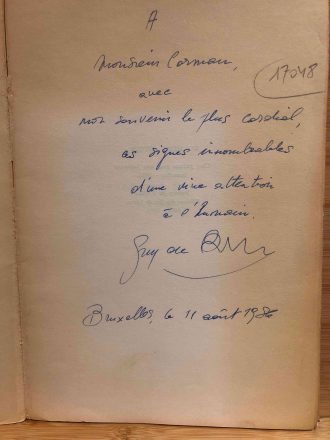 A
Monsieur Corman,
17048
avec
mon souvenir le plus cordial,
ces signes innombrables
d'une vive attention
à l'humain.
Guy de
Bruxelles, le 11 août 198